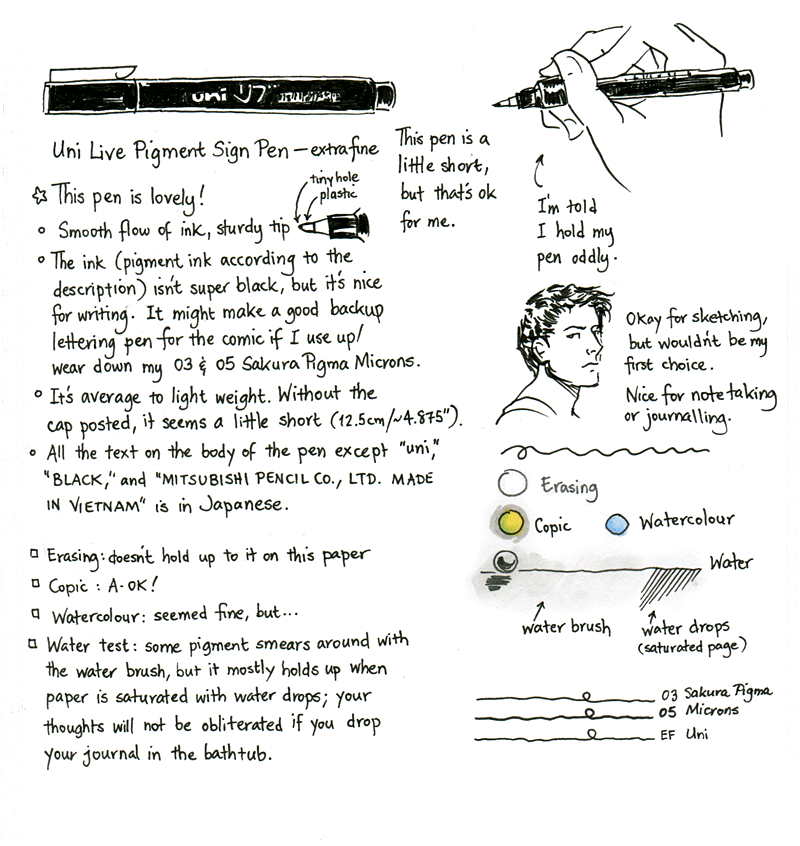 uni
Uni Live Pigment Sign Pen — extra fine
☆ This pen is lovely!
tiny hole
plastic
• Smooth flow of ink, sturdy tip
• The ink (pigment ink according to the
description) isn't super black, but it's nice
for writing. It might make a good backup
lettering pen for the comic if I use up/
wear down my 03 & 05 Sakura Pigma Microns.
• It's average to light weight. Without the
cap posted, it seems a little short (12.5cm/~4.875").
• All the text on the body of the pen except "uni,"
"BLACK," and "MITSUBISHI PENCIL CO., LTD. MADE
IN VIETNAM" is in Japanese.
□ Erasing: doesn't hold up to it on this paper
□ Copic: A-OK!
□ Watercolour: seemed fine, but...
□ Water test: some pigment smears around with
the water brush, but it mostly holds up when
paper is saturated with water drops; your
thoughts will not be obliterated if you drop
your journal in the bathtub.
This pen is a
little short,
but that's ok
for me.
I'm told
I hold my
pen oddly.
Okay for sketching,
but wouldn't be my
first choice.
Nice for note taking
or journalling.
Erasing
Copic
Watercolour
Water
water brush
water drops
(saturated page)
03 Sakura Pigma
05 Microns
EF Uni